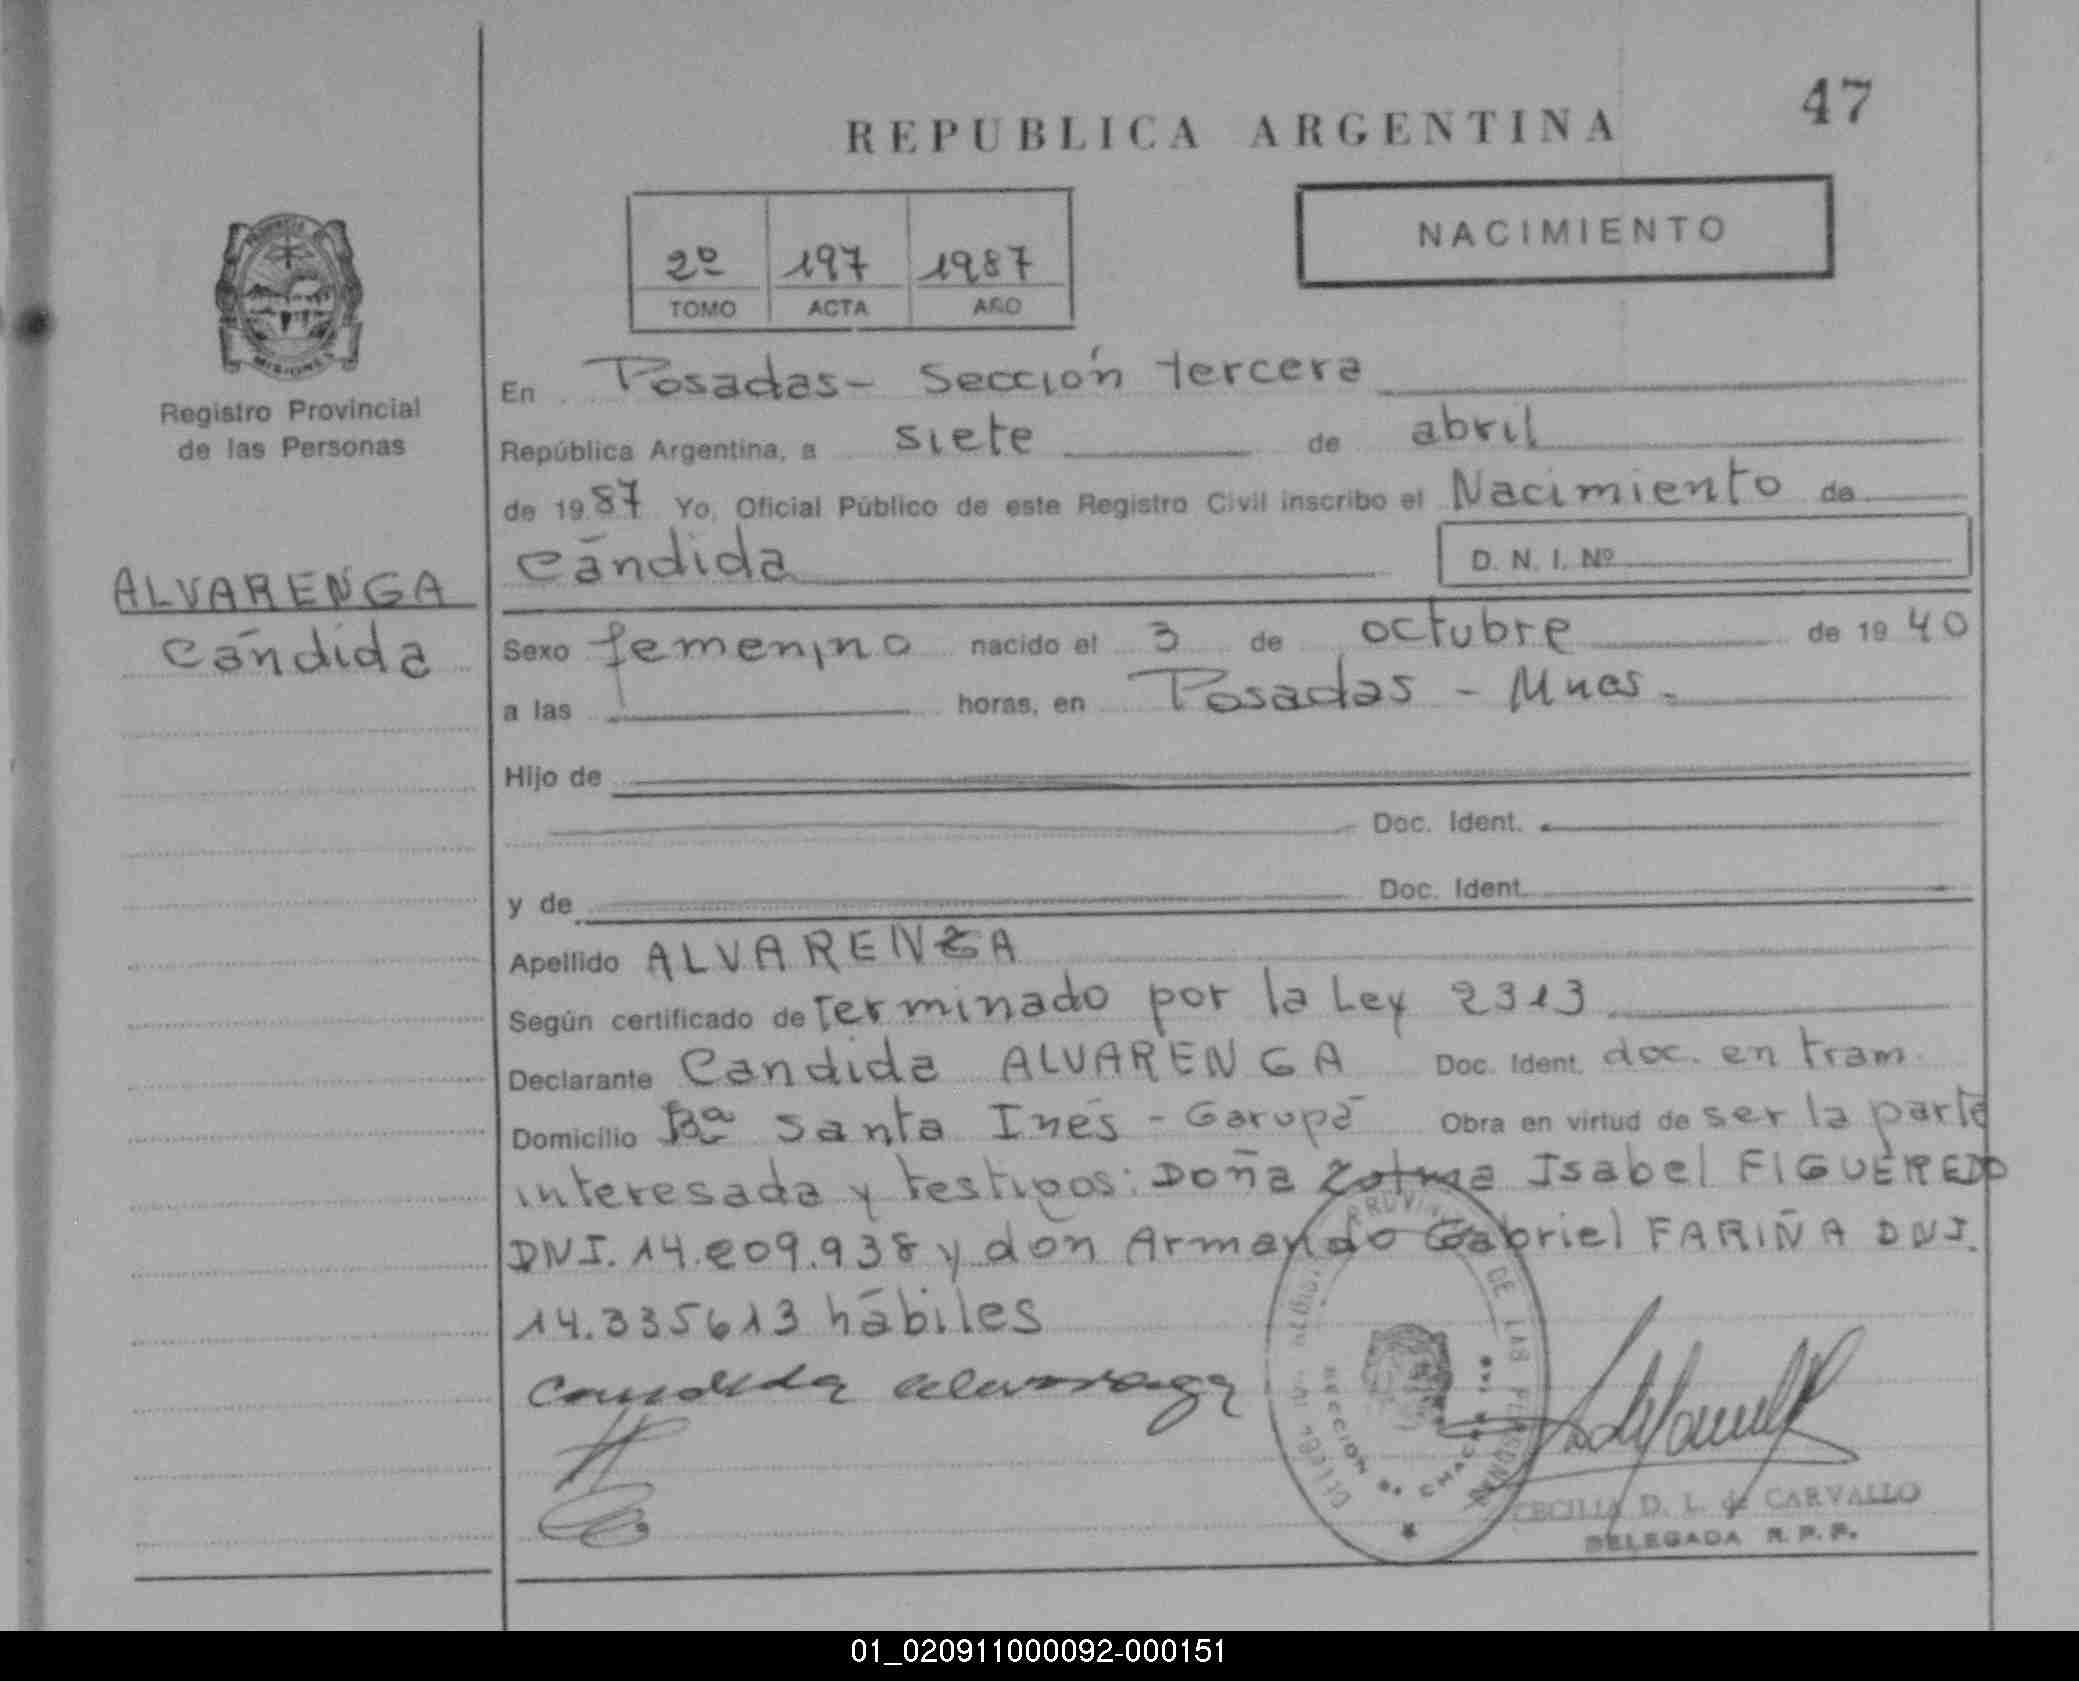 47
REPUBLICA ARGENTINA
NACIMIENTO
2º 197 1987
TOMO ACTA AÑO
MISIONES
Registro Provincial
de las Personas
ALVARENGA
Cándida
En Posadas - Sección tercera
República Argentina, a siete de abril
de 1987 Yo, Oficial Público de este Registro Civil inscribo el Nacimiento de
Cándida D. N. I. Nº
Sexo femenino nacido el 3 de octubre de 1940
a las horas, en Posadas - Mnes.
Hijo de
Doc. Ident.
y de Doc. Ident.
Apellido ALVARENGA
Según certificado determinado por la Ley 2313
Declarante Candida ALVARENGA Doc. Ident. doc. en tram.
Domicilio Bº Santa Inés - Garupá Obra en virtud de ser la parte
interesada y testigos: Doña Zolma Isabel FIGUEREDO
DNI. 14.209.938 y don Armando Gabriel FARIÑA DNI.
14.335613 hábiles
Candida Alvarenga
DE LAS PERSONAS
SECCION
CECILIA D. L. de CARVALLO
DELEGADA R. P. P.
01_020911000092-000151